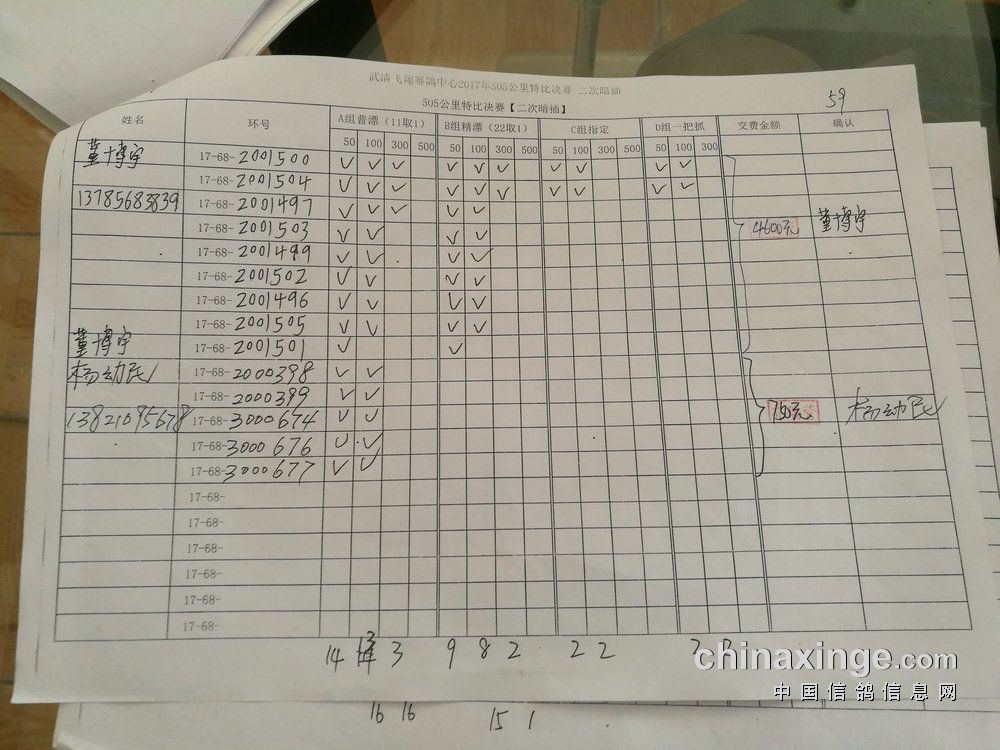 武清飞翔赛鸽中心2017年505公里特比决赛 二次暗插
59
505公里特比决赛【二次暗插】
姓名 环号 A组普漂（11取1） B组精漂（22取1） C组指定 D组一把抓 交费金额 确认
50 100 300 500 50 100 300 500 50 100 300 500 50 100 300
董博宇 17-68-2001500 ✓ ✓ ✓ ✓ ✓ ✓ ✓ ✓ ✓ ✓
17-68-2001504 ✓ ✓ ✓ ✓ ✓ ✓ ✓ ✓ ✓ ✓
13785683839 17-68-2001497 ✓ ✓ ✓ ✓ ✓
17-68-2001503 ✓ ✓ ✓ ✓ 4600元 董博宇
17-68-2001499 ✓ ✓ ✓ ✓
17-68-2001502 ✓ ✓ ✓ ✓
17-68-2001496 ✓ ✓ ✓ ✓
17-68-2001505 ✓ ✓ ✓ ✓
董博宇 17-68-2001501 ✓ ✓
杨动民 17-68-2000398 ✓ ✓
17-68-2000399 ✓ ✓
13821095678 17-68-3000674 ✓ ✓ 750元 杨动民
17-68-3000676 ✓ ✓
17-68-3000677 ✓ ✓
17-68-
17-68-
17-68-
17-68-
17-68-
17-68-
14 13 3 9 8 2 2 2 2
chinaxinge.com
中国信鸽信息网
16 16 15 1